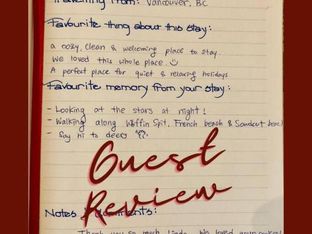 Travelling from: Vancouver, BC
Favourite thing about this stay:
a cozy, clean & welcoming place to stay.
We loved this whole place
A perfect place for quiet & relaxing holidays
Favourite memory from your stay:
- Looking at the stars at night!
- Walking along Whiffin Spit, French beach & Sombrio beach
- Say hi to deers
Guest
Review
Notes
Thank you so much
We loved